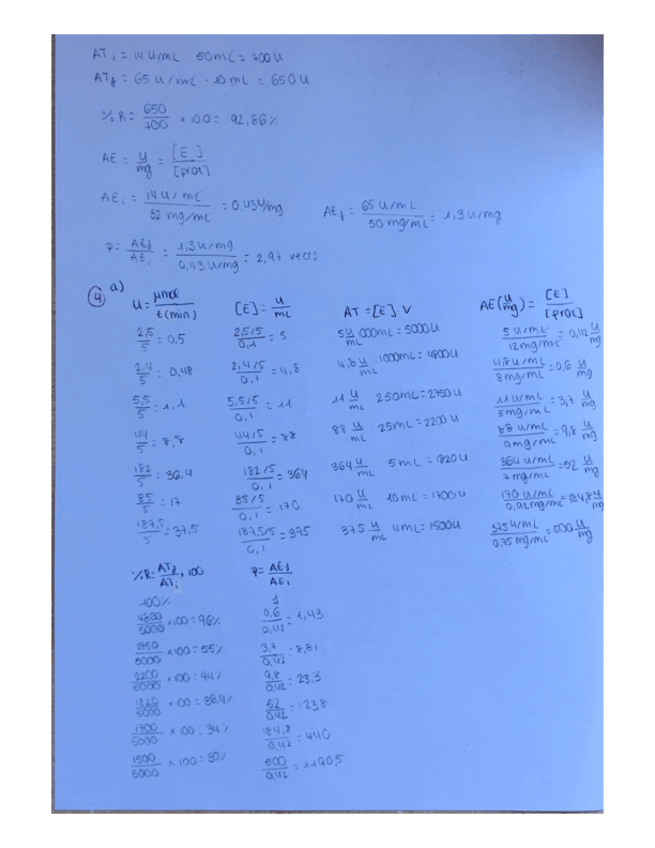 AT i = 14 U/mL 50mL = 700 U
AT f = 65 U/mL · 10 mL = 650 U
% R = 650/700 × 100 = 92,86%
AE = U/mg = [E]/[prot]
AE i = 14 U/mL / 32 mg/mL = 0,43 U/mg AE f = 65 U/mL / 50 mg/mL = 1,3 U/mg
P = AE f/AE i = 1,3 U/mg / 0,43 U/mg = 2,97 veces
④ a) U = μmol/t(min) [E] = U/mL AT = [E] · V AE (U/mg) = [E]/[prot]
2,5/5 = 0,5 2,5/5 / 0,1 = 5 5 U/mL 1000mL = 5000U 5 U/mL / 12 mg/mL = 0,42 U/mg
2,4/5 = 0,48 2,4/5 / 0,1 = 4,8 4,8 U/mL · 1000mL = 4800U 4,8 U/mL / 8 mg/mL = 0,6 U/mg
5,5/5 = 1,1 5,5/5 / 0,1 = 11 11 U/mL 250mL = 2750U 11 U/mL / 3 mg/mL = 3,7 U/mg
44/5 = 8,8 44/5 / 0,1 = 88 88 U/mL · 25mL = 2200 U 88 U/mL / 9 mg/mL = 9,8 U/mg
182/5 = 36,4 182/5 / 0,1 = 364 364 U/mL 5mL = 1820U 364 U/mL / 7 mg/mL = 52 U/mg
85/5 = 17 85/5 / 0,1 = 170 170 U/mL 10mL = 1700U 170 U/mL / 0,92 mg/mL = 184,8 U/mg
187,5/5 = 37,5 187,5/5 / 0,1 = 375 375 U/mL 4mL = 1500U 375 U/mL / 0,75 mg/mL = 500 U/mg
% R = AT f/AT i · 100 P = AE f/AE i
100% 1
4800/5000 × 100 = 96% 0,6/0,42 = 1,43
2750/5000 × 100 = 55% 3,7/0,42 = 8,81
2200/5000 × 100 = 44% 9,8/0,42 = 23,3
1820/5000 × 100 = 36,4% 52/0,42 = 123,8
1700/5000 × 100 = 34% 184,8/0,42 = 440
1500/5000 × 100 = 30% 500/0,42 = 1190,5